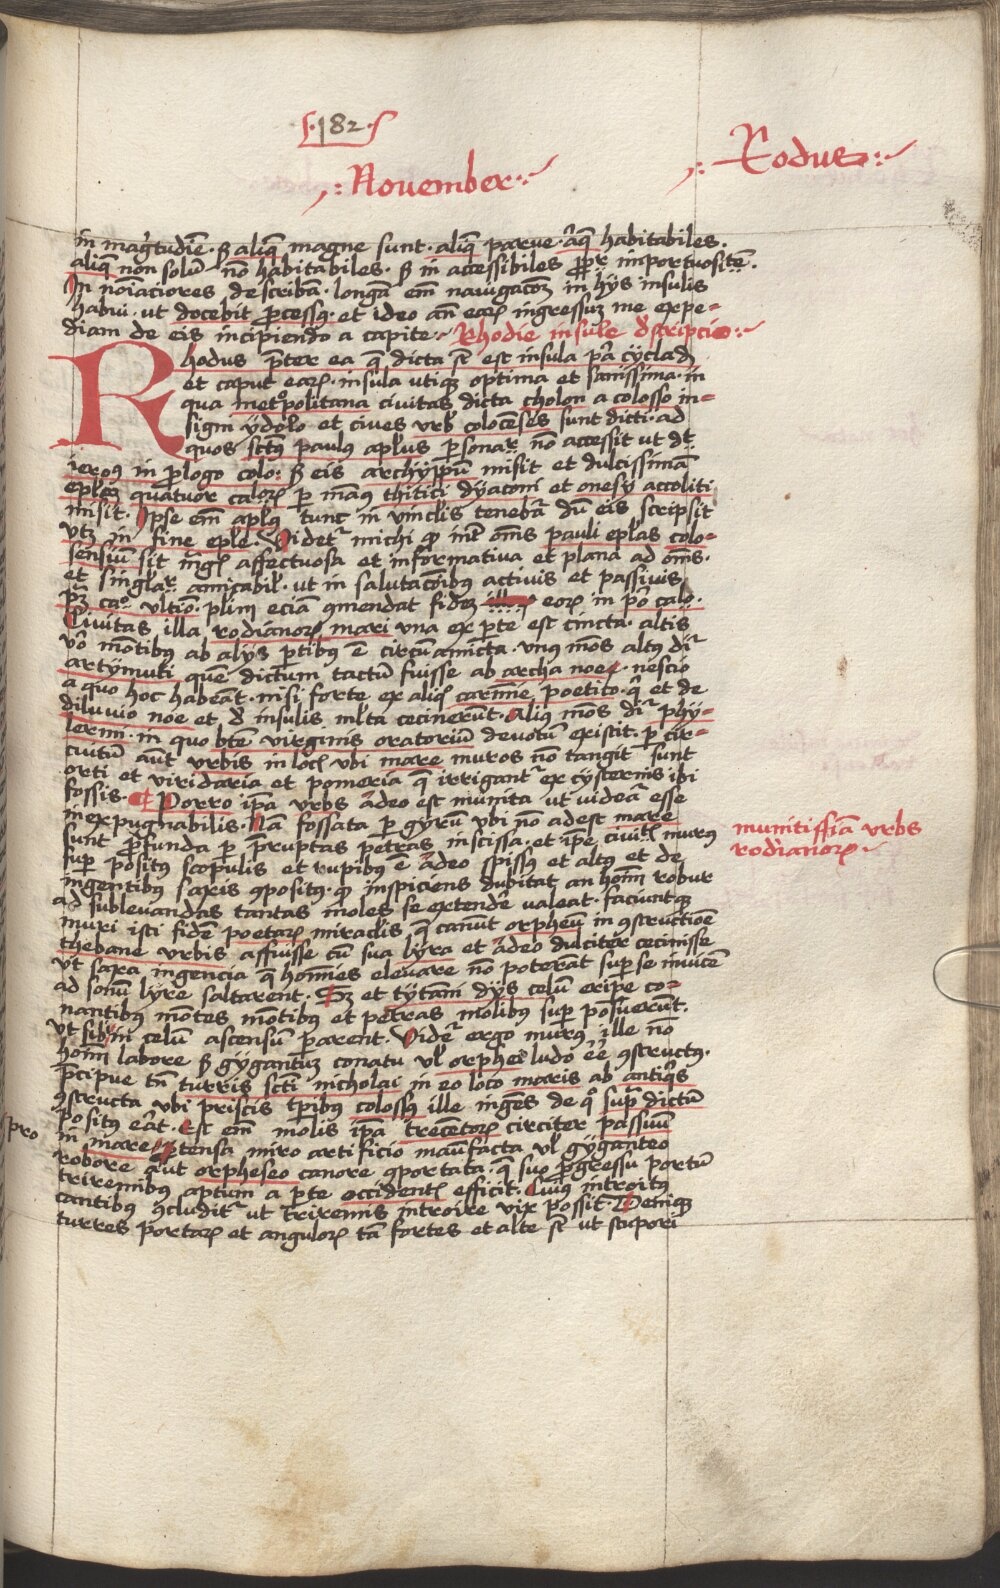 182
November
Rodus
in mag͛tudīe · s͛ aliq̄ magne sunt · aliq̄ parue · a̔q̄ habitabiles ·
aliq̄ non solū nō habitabiles · s͛ in accessibiles ꝓpt͛ importuositē ·
In nōiaciores describā · longā em̄ nauigacōꝫ in hijs insulis
habui · ut docebit ꝓcessꝰ · et ideo an̄ eaꝝ ingressuꝫ me expe-
diam de eis incipiendo a capite · Rhodie insule d͛scripcio
Rhodus p̄ter ea q̄ dicta sē est insula p̄a cycladꝫ
et caput eaꝝ · insula utiqꝫ optima et sanissima · in
qua met͛opolitana civitas dicta cholon a colosso in-
signi ydolo et cives urb͛ colocēses sunt dicti · ad
quos sctꝰ paulꝰ aplus ꝑsonar̄ nō accessit ut dt̄
ieroꝰ in ꝓlogo colo: s͛ eis archypp̄ū misit et dulcissimā
eplaꝫ quatuor caloꝝ ꝑ manꝰ thitici dyaconi et onesij accoliti
misit · Ipse em̄ aplꝰ tunc in vinclis tenebat̄ dū eis scripsit
utꝫ in fine eple · Videt͛ michi ꝙ int͛ om̄s pauli eplas colo-
sensiū sit mgꝭ affectuosa et informativa et plana ad om̄s ·
et singlar̄ amicabil͛ · ut in salutacōibꝰ activis et passivis
pꝫ ca͛o ultīo · plim eciam ꝯmendat fideꝫ eoꝝ in p͛o calo ·
Civitas illa rodianoꝝ mari una ex ꝑte est cincta · altis
v͛o mōtibꝰ ab alijs ꝑtibꝰ ē circūamicta · unꝰ mōs altꝰ di͛
artymuti quē dictum tactū fuisse ab archa noe · nescio
a quo hoc habeāt · nisi forte ex aliq͛ carmīe poetico · q͛ et de
diluvio noe et d͛ insulis mlta cecinerūt · Aliꝰ mōs di͛ phy-
lermi · in quo btē virginis oratoriū devotū existit · ꝑ cir-
cuitū aūt urbis in locꝭ ubi mare muros nō tangit sunt
orti et viridaria et pomeria q̄ irrigant͛ ex cysternis ibi
fossis · Porro ip̄a urbs adeo est munita ut videat̄ esse
inexpugnabilis · Nā fossata ꝑ gyrū ubi nō adest mare
sunt ꝓfunda ꝑ p̄ruptas petras inscissa · et ip̄e civil͛ murꝰ
suꝑ positꝰ scopulis et rupibꝰ ē adeo spissꝰ et altꝰ et de
ingentibꝰ saxis ꝯpositꝰ · ꝙ inspiciens dubitat an hoīm robur
ad sublevandas tantas moles se extendēe valeat · faciuntqꝫ
muri isti fidē poetaꝝ miraclis q̄ canūt orpheū in ꝯstructiōe
thebane urbis affuisse cū sua lyra et adeo dulciter cecinisse
ut saxa ingencia q̄ homīes elevare nō poterāt suꝑ se invicē
ad sonū lyre saltarent · Sꝫ et tytani dijs celū eripe co-
nantibꝰ mōtes mōtibꝰ et petras molibꝰ suꝑ posuerūt ·
ut sibi in celū ascensū parent · Videt͛ ergo murꝰ ille nō
hoīm labore s͛ gygantuꝫ conatu ul͛ orphei ludo ēe ꝯstructꝰ ·
p̄cipue tn̄ turris scti nicholai in eo loco maris ab antiqꝭ
ꝯstructa ubi priscis tꝑibꝰ colossꝰ ille ingēs de q͛ sup͛ dictū
positꝰ erat · Est em̄ molis ip̄a trecētoꝝ circiter passuū
pro
in mare tensa miro artificio manūfacta ul͛ gyganteo
robore aut orpheseo canore ꝯportata · q̄ suo ꝓgressu portū
triremibꝰ aptum a ꝑte occidentꝭ efficit · Cuiꝰ introitꝰ
cantibꝰ ꝯcludit͛ ut triremis introire vix possit · Deniqꝫ
turres portaꝝ et anguloꝝ tā fortes et alte sē ut stupori
munitissīa urbs
rodianoꝝ